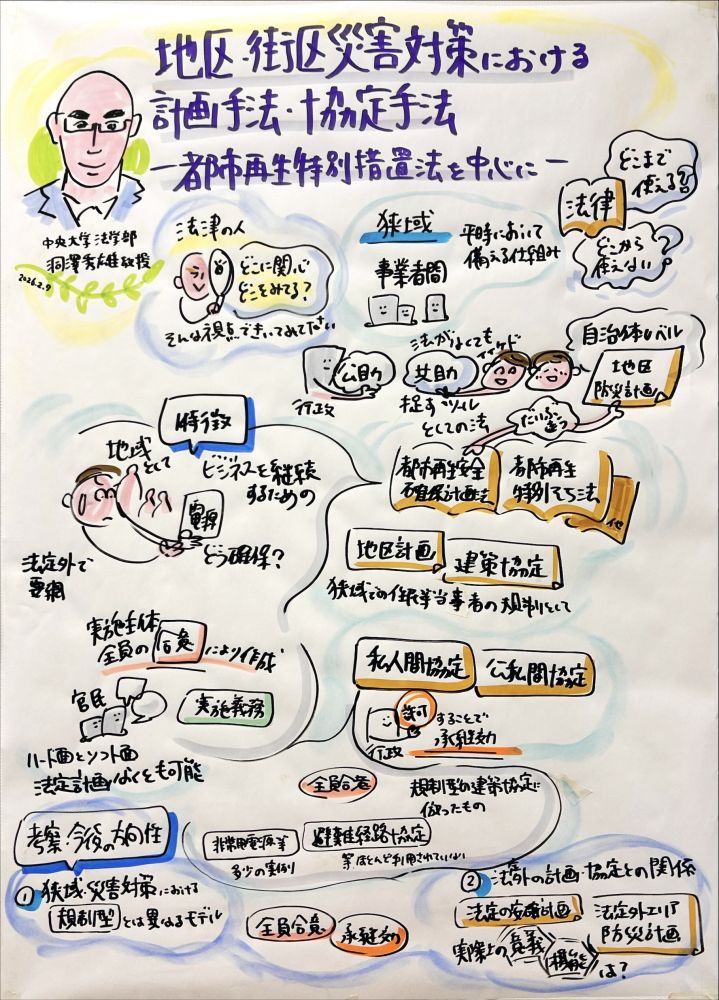 地区・街区災害対策における
計画手法・協定手法
―都市再生特別措置法を中心に―
中央大学法学部
洞澤秀雄教授
2026.2.9
法律の人
どこに関心
どこをみてる?
そんな視点できいてみてださい
狭域
事業者間
平時において
備える仕組み
法律
どこまで
使える?
どこから
使えない?
行政
公助
共助
法がなくても
促すツール
としての法
自治体レベル
地区
防災計画
だいぶ違う
都市再生安全
確保計画法
都市再生
特別そち法
他
特徴
地域
として
ビジネスを継続
するための
電源
どう確保?
法定外で
要綱
地区計画
建築協定
狭域での住民等当事者の規制として
実施主体
全員の合意により作成
官民
実施義務
ハード面とソフト面
法定計画なくとも可能
私人間協定
公私間協定
行政
許可
することで
承継効
全員合意
規制型の建築協定に
倣ったもの
非常用電源等
多少の実例
避難経路協定
等ほとんど利用されていない
考察・今後の方向性
① 狭域・災害対策における
規制型とは異なるモデル
全員合意
承継効
② 法外の計画・協定との関係
法定の安確計画
法定外エリア
防災計画
実際上の意義
機能
は?